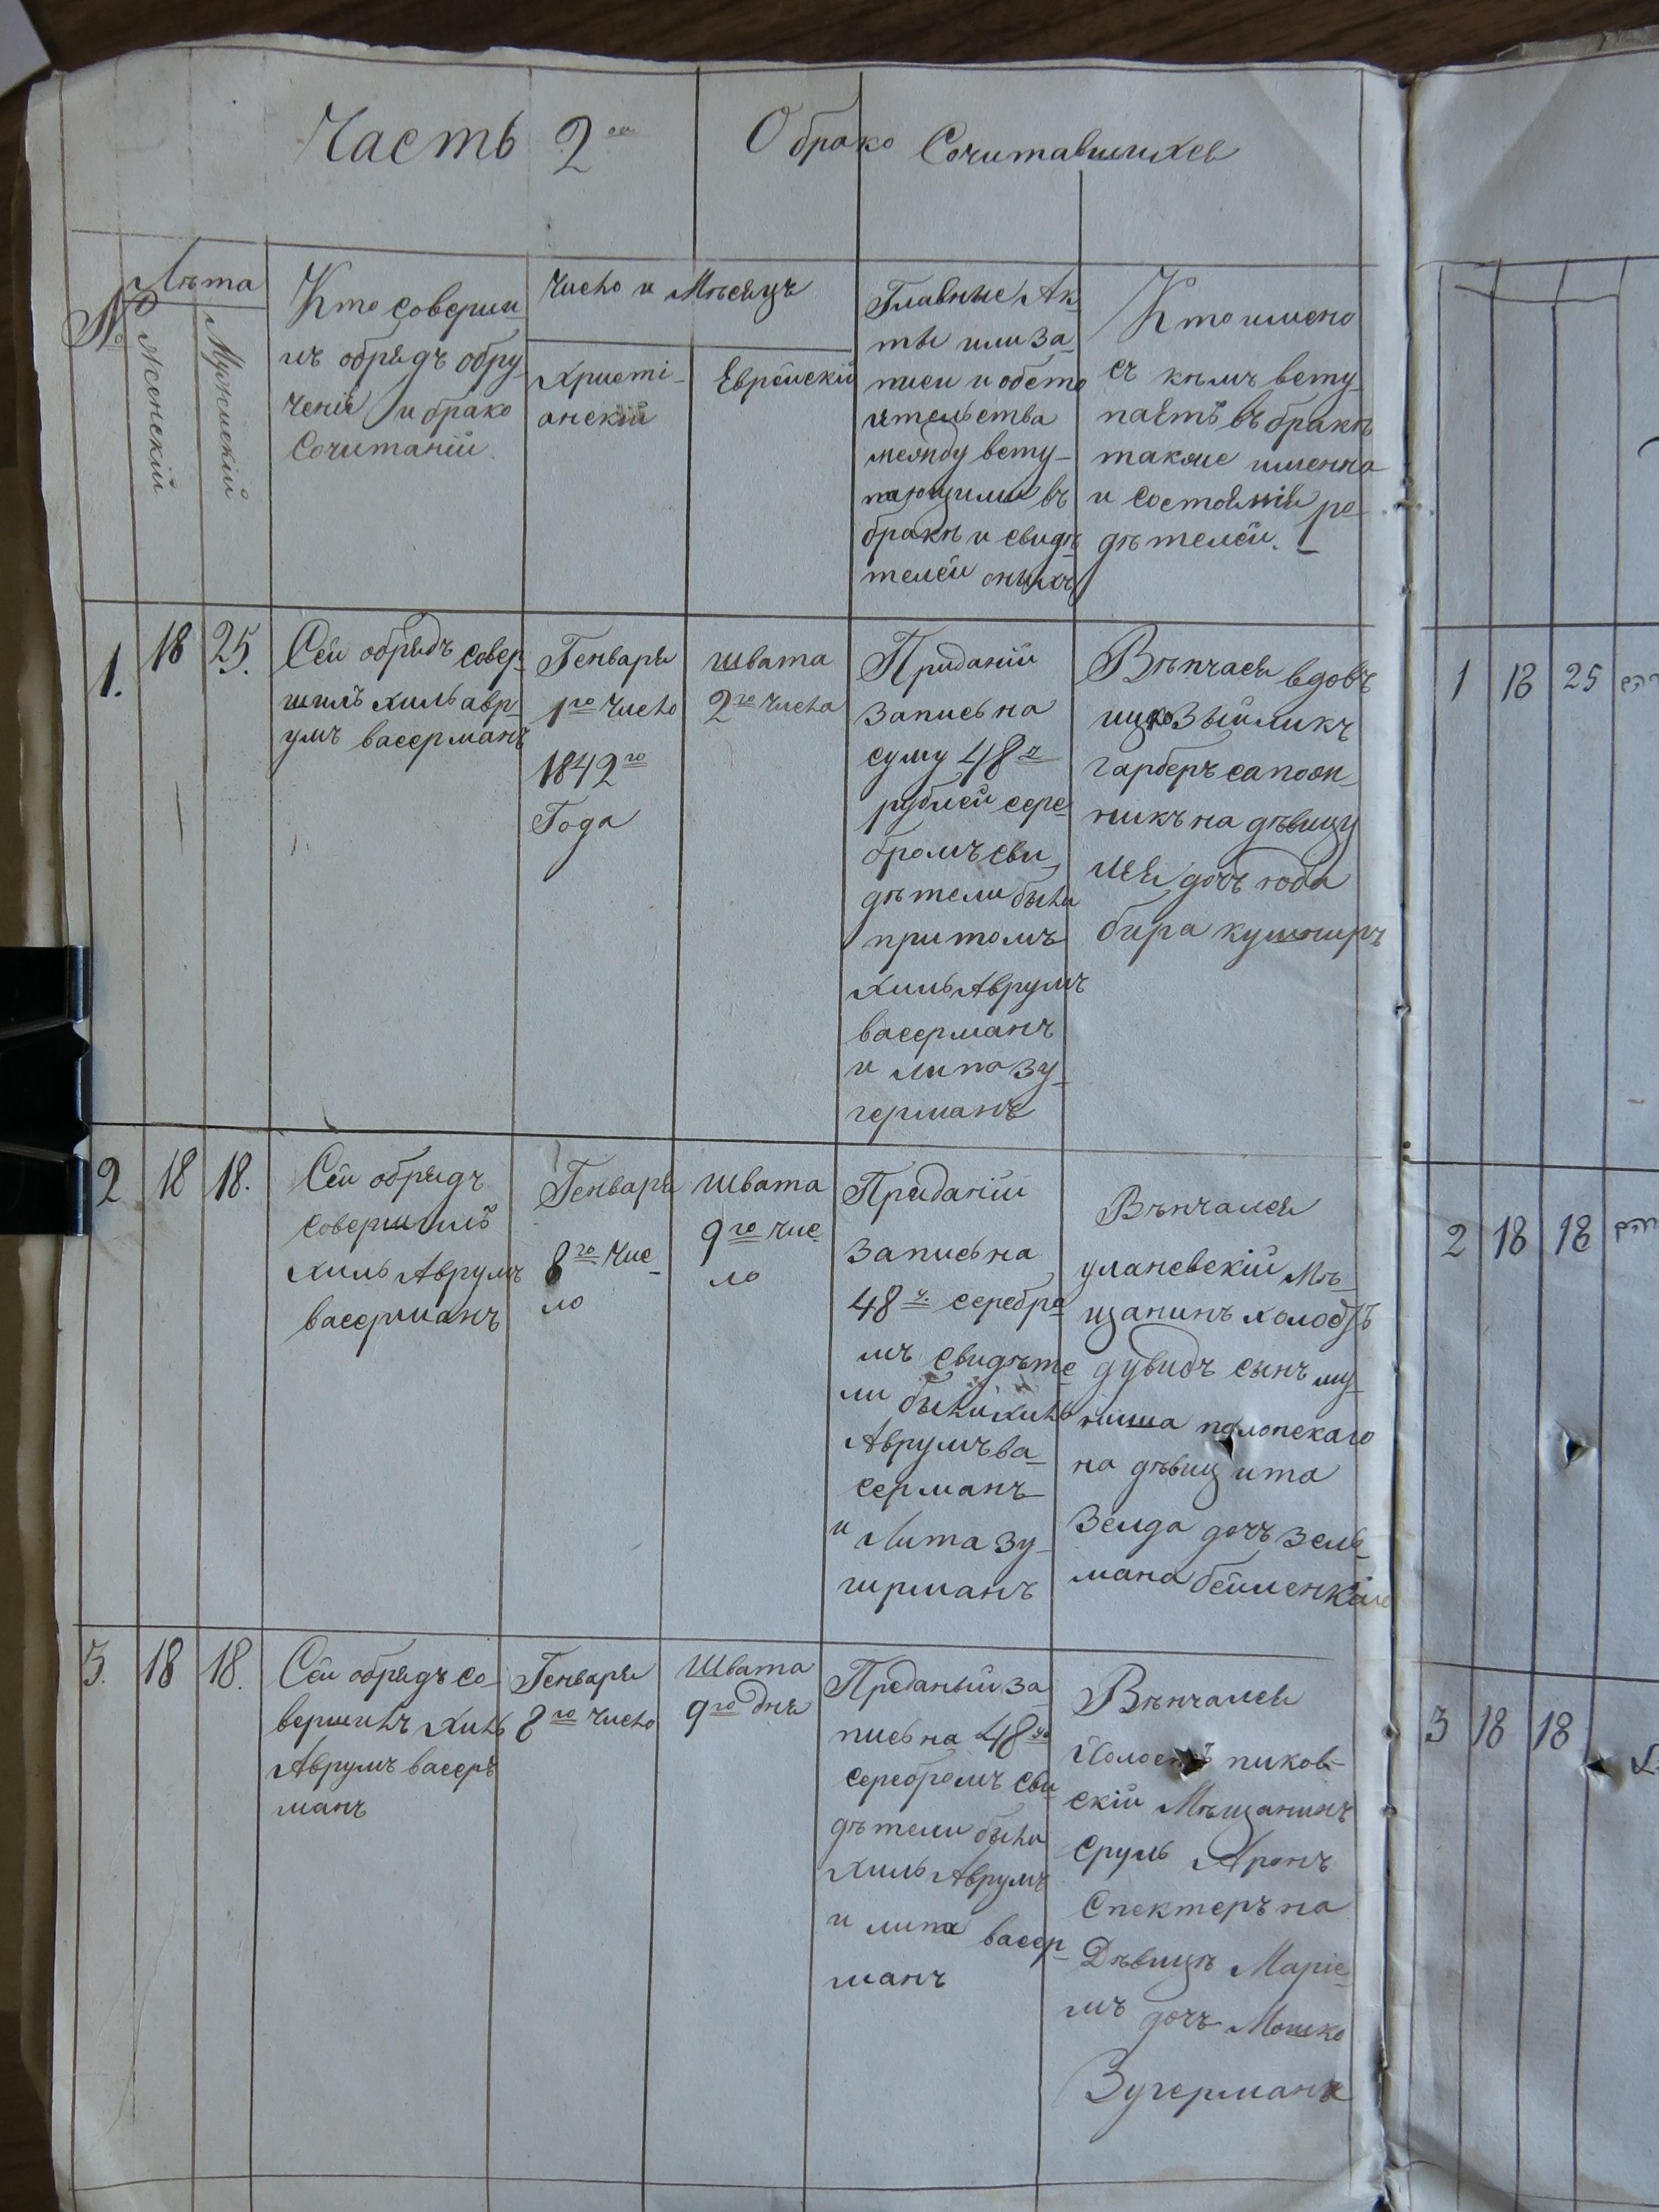 Часть 2ая О брако Сочитавшихся
№
Лѣта
Женскій
Мужескій
Кто соверши
лъ обрядъ обру
ченія и брако
Сочитаній.
Число и Мѣсяцъ
Христі-
анскій
Еврейскій
Главные Ак
ты или за
писи и обсто
ятельства
между всту-
пающими въ
бракъ и свидѣ
телей оныхъ
Кто имено
съ кѣмъ всту
паетъ въ бракъ
также именна
и состояній ро
дѣтелей.
1.
18
25.
Сей обрядъ совер
шилъ хиль авр
умъ васерманъ
Генваря
1го Число
1842го
Года
Швата
2го Числа
Приданій
запись на
суму 48
рублей сере
бромъ сви
дѣтели были
притомъ
хиль Аврумъ
васерманъ
и липа зу
германъ
Вѣнчася вдовъ
Зыйликъ
гарберъ сапож
никъ на дѣвицу
дочъ
кушниръ
2
18
18.
Сей обрядъ
совершилъ
хиль Аврумъ
васерманъ
Генваря
8го Чис
ло
Швата
9го чис
ло
Приданій
запись на
48 серебро
мъ свидѣте
ли были хиль
Аврумъ ва
серманъ
и Липа зу
гирманъ
Вѣнчался
улановскій Мѣ
щанинъ холостъ
дувидъ сынъ му
ниша полонскаго
на дѣвиц ита
Зелда дочъ зель
мана
3.
18
18.
Сей обрядъ со
вершилъ хиль
Аврумъ васеръ
манъ
Генваря
8го Число
Швата
9го дня
Приданый за
пись на 48
серебромъ сви
дѣтели были
хиль Аврумъ
и липа васер
манъ
Вѣнчался
Холостъ пиков-
скій Мѣщанинъ
Сруль Аронъ
Спекторъ на
Дѣвицѣ Маріе
мъ дочъ Мошко
Зугерманъ
1 18 25
2 18 18
3 18 18